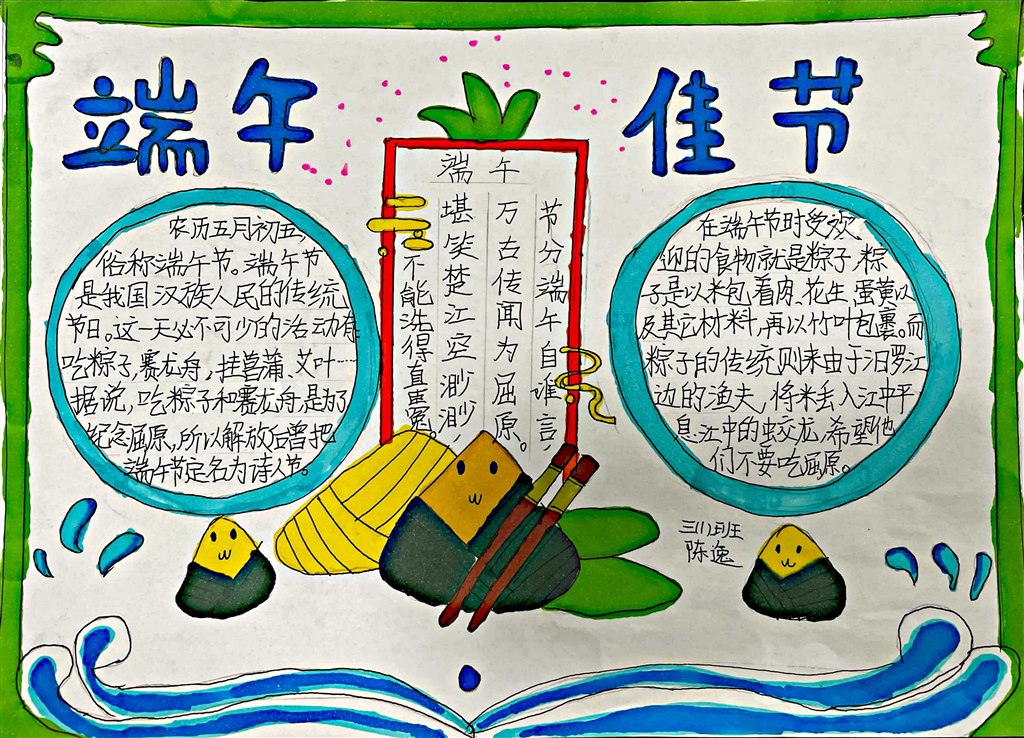 端午 佳节
农历五月初五,
俗称端午节。端午节
是我国汉族人民的传统
节日。这一天必不可少的活动有
吃粽子,赛龙舟,挂菖蒲、艾叶……
据说,吃粽子和赛龙舟,是为了
纪念屈原,所以解放后曾把
端午节定名为诗人节。
端午
节分端午自谁言,
万古传闻为屈原。
堪笑楚江空渺渺,
不能洗得直臣冤。
在端午节时受欢
迎的食物就是粽子,粽
子是以米包着肉、花生、蛋黄以
及其它材料,再以竹叶包裹。而
粽子的传统则来由于汨罗江
边的渔夫,将米丢入江中平
息江中的蛟龙,希望他
们不要吃屈原。
三(1)班
陈逸